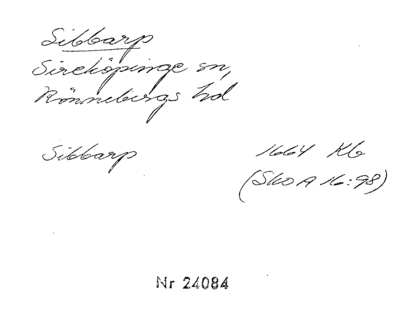 Sibbarp
Sireköpinge sn,
Rönnebergs hd
Sibbarp 1664 Kb
(SkOA 16:98)
Nr 24084